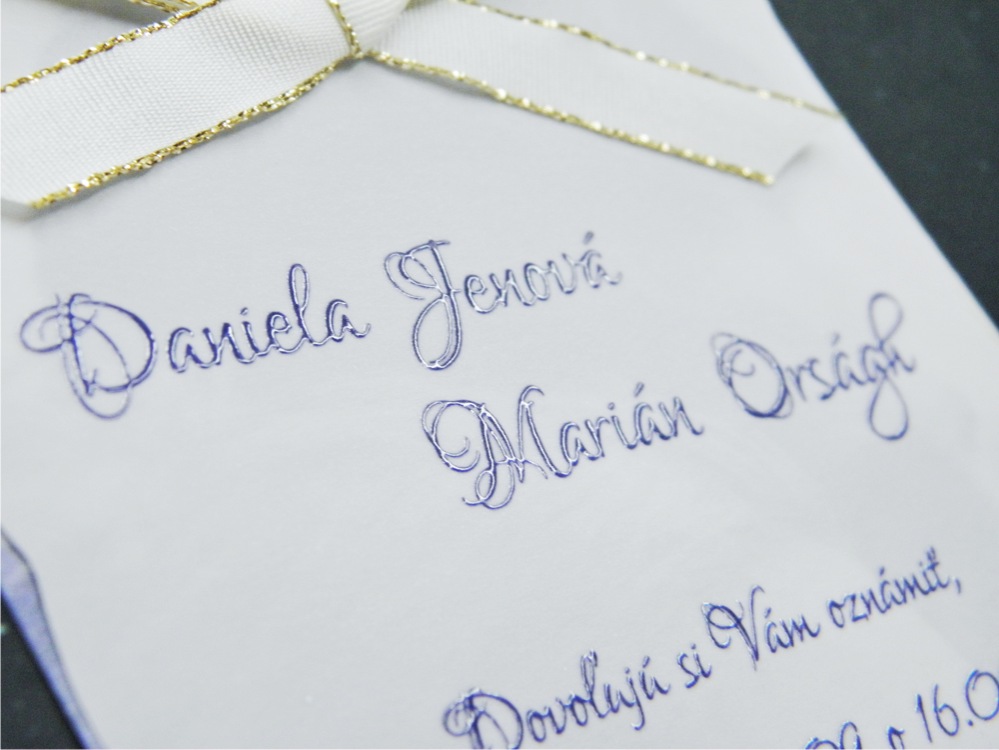 Daniela Jenová
Marián Orságh
Dovoľujú si Vám oznámiť,
o 16.0